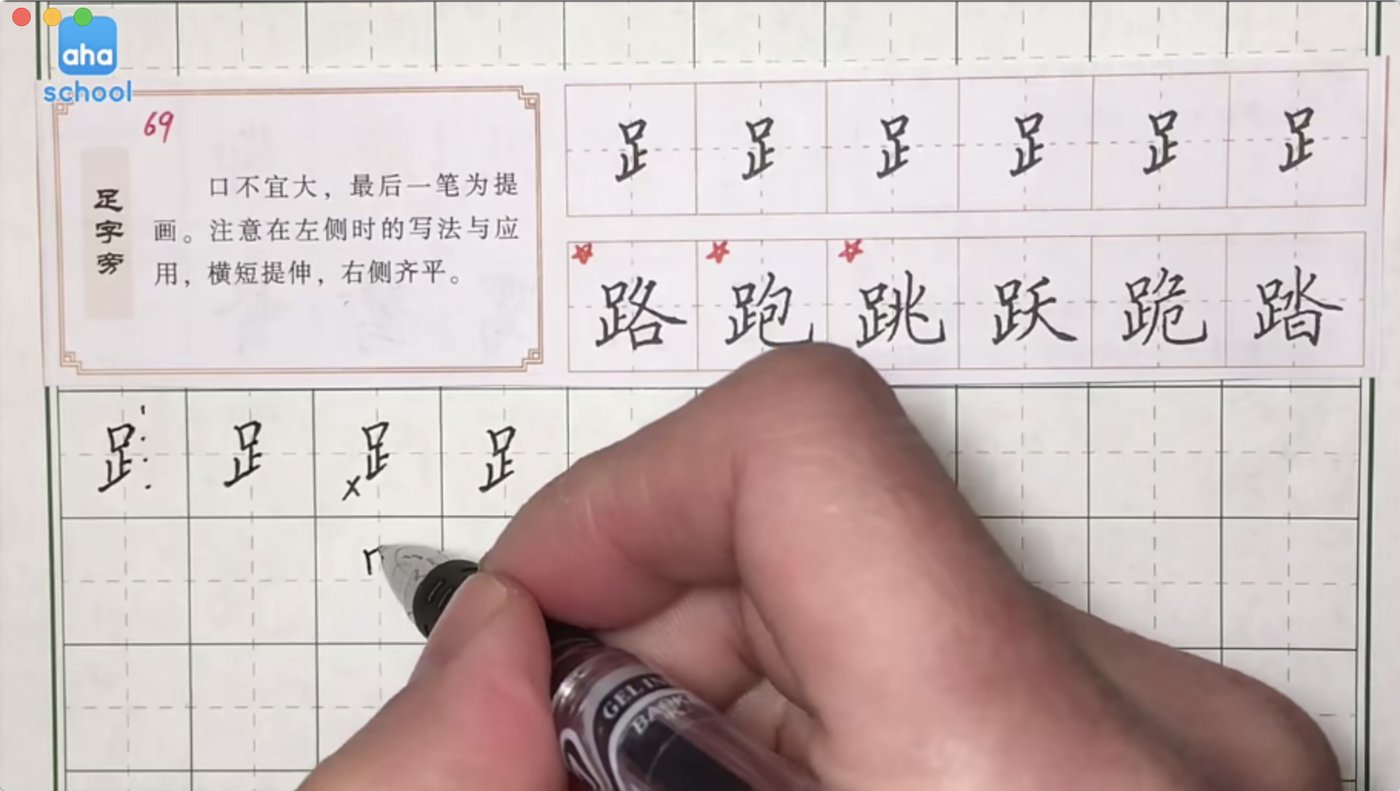 aha
school
69
足字旁
口不宜大，最后一笔为提
画。注意在左侧时的写法与应
用，横短提伸，右侧齐平。
𧾷 𧾷 𧾷 𧾷 𧾷 𧾷
路 跑 跳 跃 跪 踏
𧾷 𧾷 𧾷 𧾷
×
GEL IN